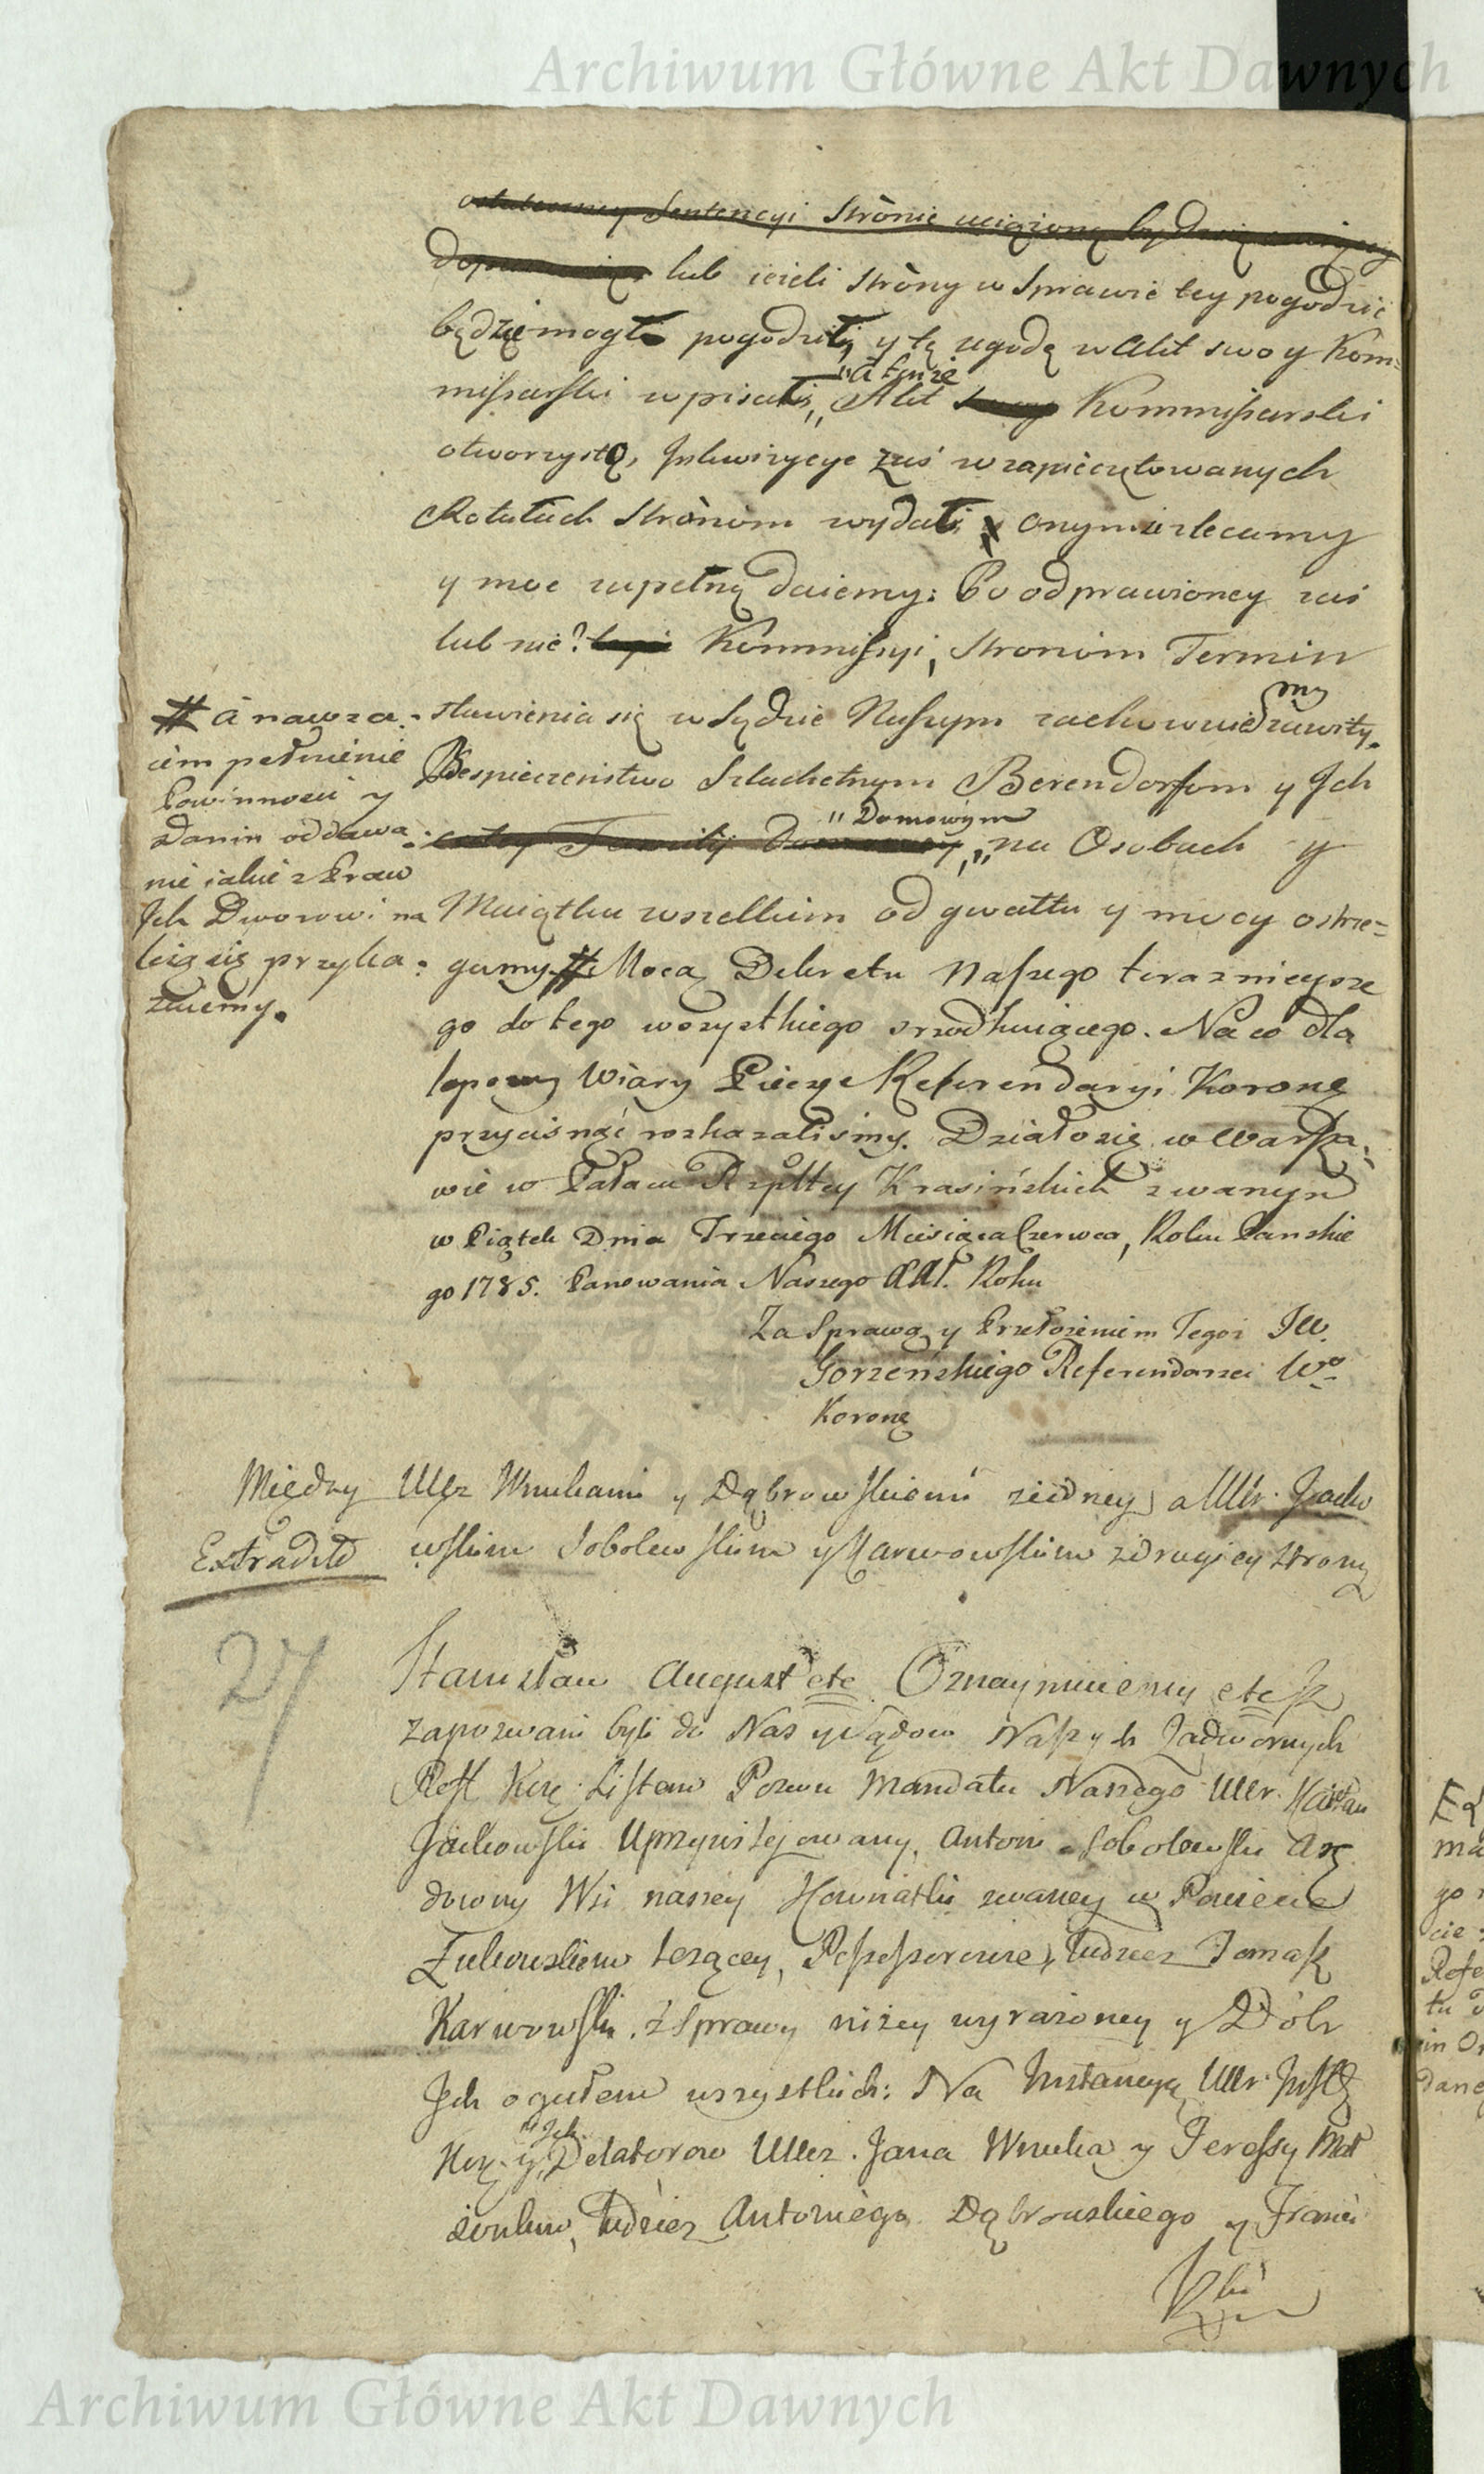 Archiwum Główne Akt Dawnych
ostateczney Sentencyi Strònie uciążoney
lub ieżeli Stròny w Sprawie tey pogodzić
będzie mogli pogodzili, y tę ugodę w Akt swoy Kom=
missarski wpisali, "a tenże" Akt Kommissarski
otworzysto, Inkwizycye zaś w zapieczętowanych
Rotułach Strònom wydali, onymże zlecamy
y moc zupełną daiemy: Po odprawioney zaś
lub nie? Kommissyi, Stronòm Termin
stawienia się w Sądzie Naszym zachowuiemy zawity.
Bespieczeństwo Szlachetnym Berendorfom y Ich
"Domowym" na Osobach y
Maiątku wszelkim od gwałtu y mocy ostrze=
gamy # Mocą Dekretu Naszego teraznieysze
go do tego wszystkiego srzodkuiącego. Na co dla
lepszey Wiary Pieczęć Referendaryi Koronę
przycisnąć rozkazaliśmy. Działo się w Warsza:
wie w Pałacu Rzpltey Krasińskich zwanym
w Piątek Dnia Trzeciego Miesiąca Czerwca, Roku Panskie
go 1785. Panowania Naszego XXI. Roku
# a nawza:
iem pełnienie
Powinnosci y
Danin oddawa:
nie iakie z Praw
Ich Dworowi na
leżą się przyka:
zuiemy.
Za Sprawą y Przełożeniem Tegoż JW.
Gorzeńskiego Referendarza Wo
Koronę
Między Uller Wnukami y Dąbrowskiemi ziedney a Ullr. Jacko
wskim Sobolewskim y Karwowskim zdrugiey strony
Extradit
27
Stanisław August etc Oznaymuiemy etc Jż
zapozwani byli do Nas y Sądow Naszych Zadwornych
Reff Korę. Listem Pozwu Mandatu Naszego Ullr. Kaietan
Jackowski Uprzywilejowany, Antoni Sobolewski Arę
downy Wsi naszey Howniatki zwaney w Powiecie
Łukowskiem leżącey, Possessorowie, tudziez Tomasz
Karwowski. z Sprawy niżey wyrażoney y Dóbr
Ich ogułem wszystkich: Na Instancyą Ullr. Instg
Korę. y "Ich" Delatorow Uller. Jana Wnuka y Teressy Mał
żonkow, Tudziez Antoniego Dąbrowskiego y Franci
Archiwum Główne Akt Dawnych